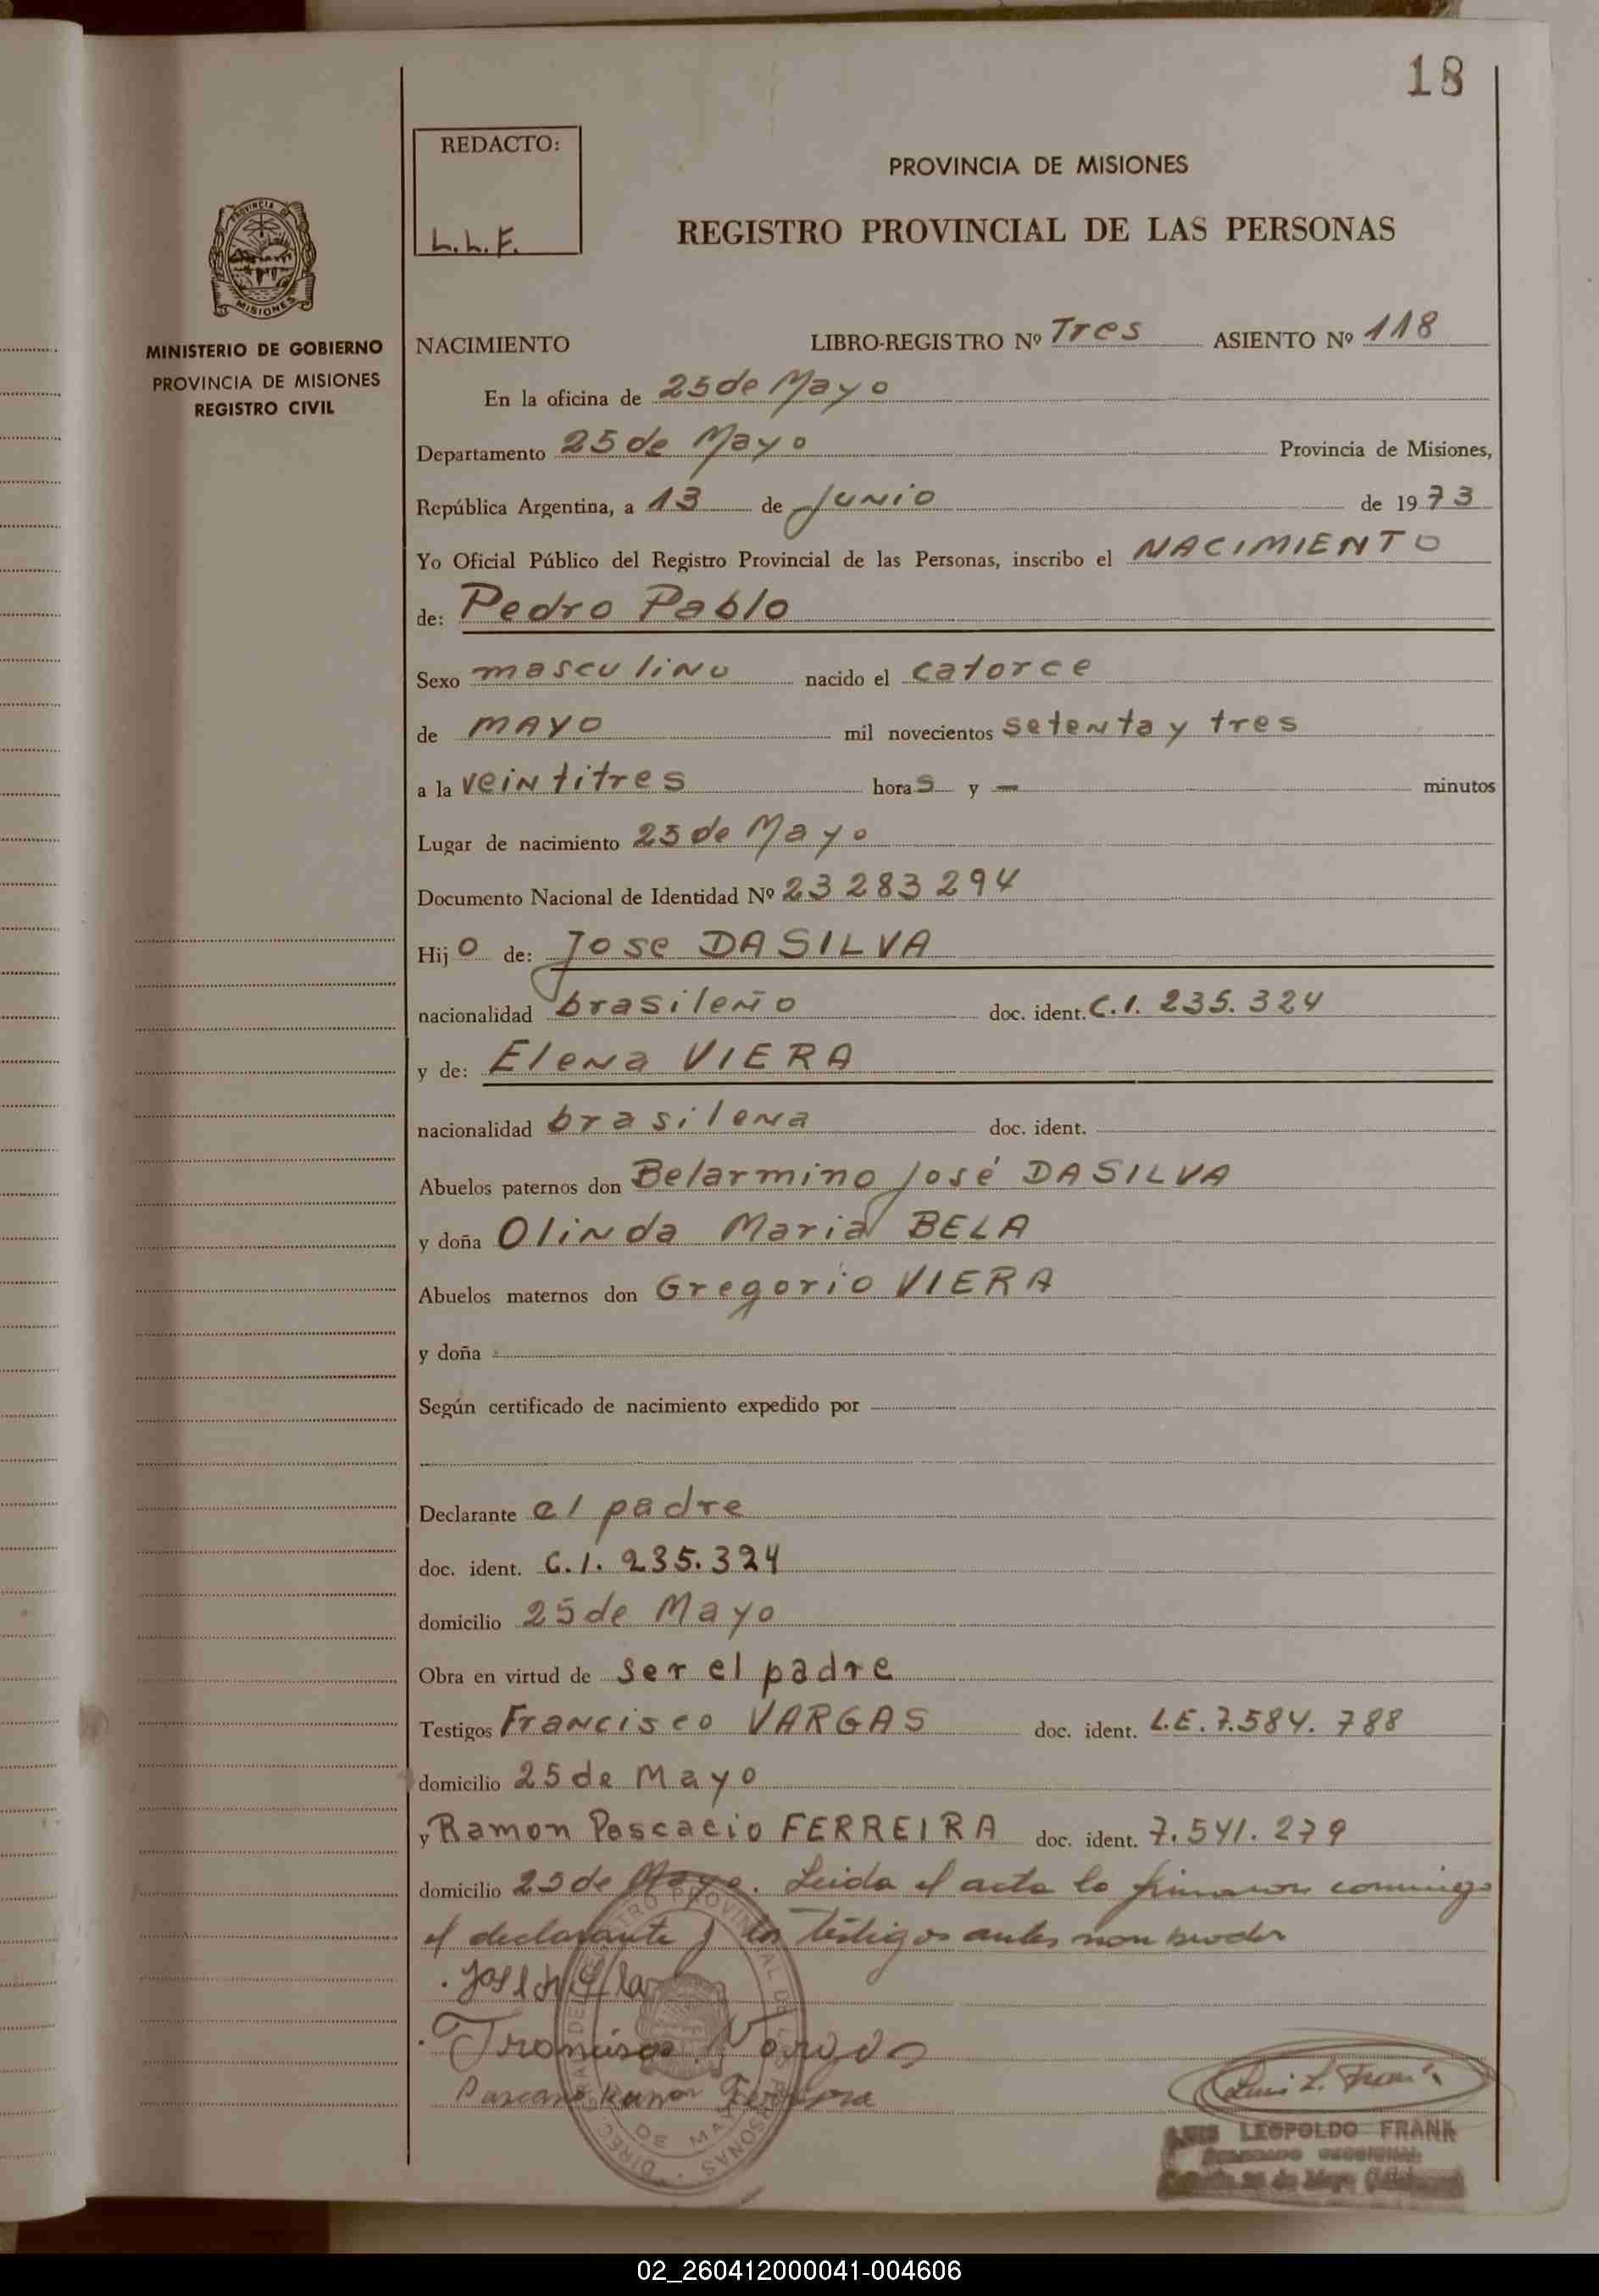 18
REDACTO:
L.L.F.
PROVINCIA DE MISIONES
REGISTRO PROVINCIAL DE LAS PERSONAS
PROVINCIA DE
MISIONES
MINISTERIO DE GOBIERNO
PROVINCIA DE MISIONES
REGISTRO CIVIL
NACIMIENTO LIBRO-REGISTRO Nº Tres ASIENTO Nº 118
En la oficina de 25 de Mayo
Departamento 25 de Mayo Provincia de Misiones,
República Argentina, a 13 de Junio de 1973
Yo Oficial Público del Registro Provincial de las Personas, inscribo el NACIMIENTO
de: Pedro Pablo
Sexo masculino nacido el catorce
de MAYO mil novecientos setenta y tres
a la veintitres horas y — minutos
Lugar de nacimiento 25 de Mayo
Documento Nacional de Identidad Nº 23 283 294
Hijo de: Jose DASILVA
nacionalidad brasileño doc. ident. C.I. 235.324
y de: Elena VIERA
nacionalidad brasilena doc. ident.
Abuelos paternos don Belarmino José DASILVA
y doña Olinda Maria BELA
Abuelos maternos don Gregorio VIERA
y doña
Según certificado de nacimiento expedido por
Declarante el padre
doc. ident. C.I. 235.324
domicilio 25 de Mayo
Obra en virtud de ser el padre
Testigos Francisco VARGAS doc. ident. L.E. 7.584.788
domicilio 25 de Mayo
y Ramon Pascacio FERREIRA doc. ident. 7.541.279
domicilio 25 de Mayo. Leida el acta lo firmaron conmigo
el declarante y los testigos antes
Francisco Vargas
Ramon Ferreira
LUIS LEOPOLDO FRANK
02_260412000041-004606